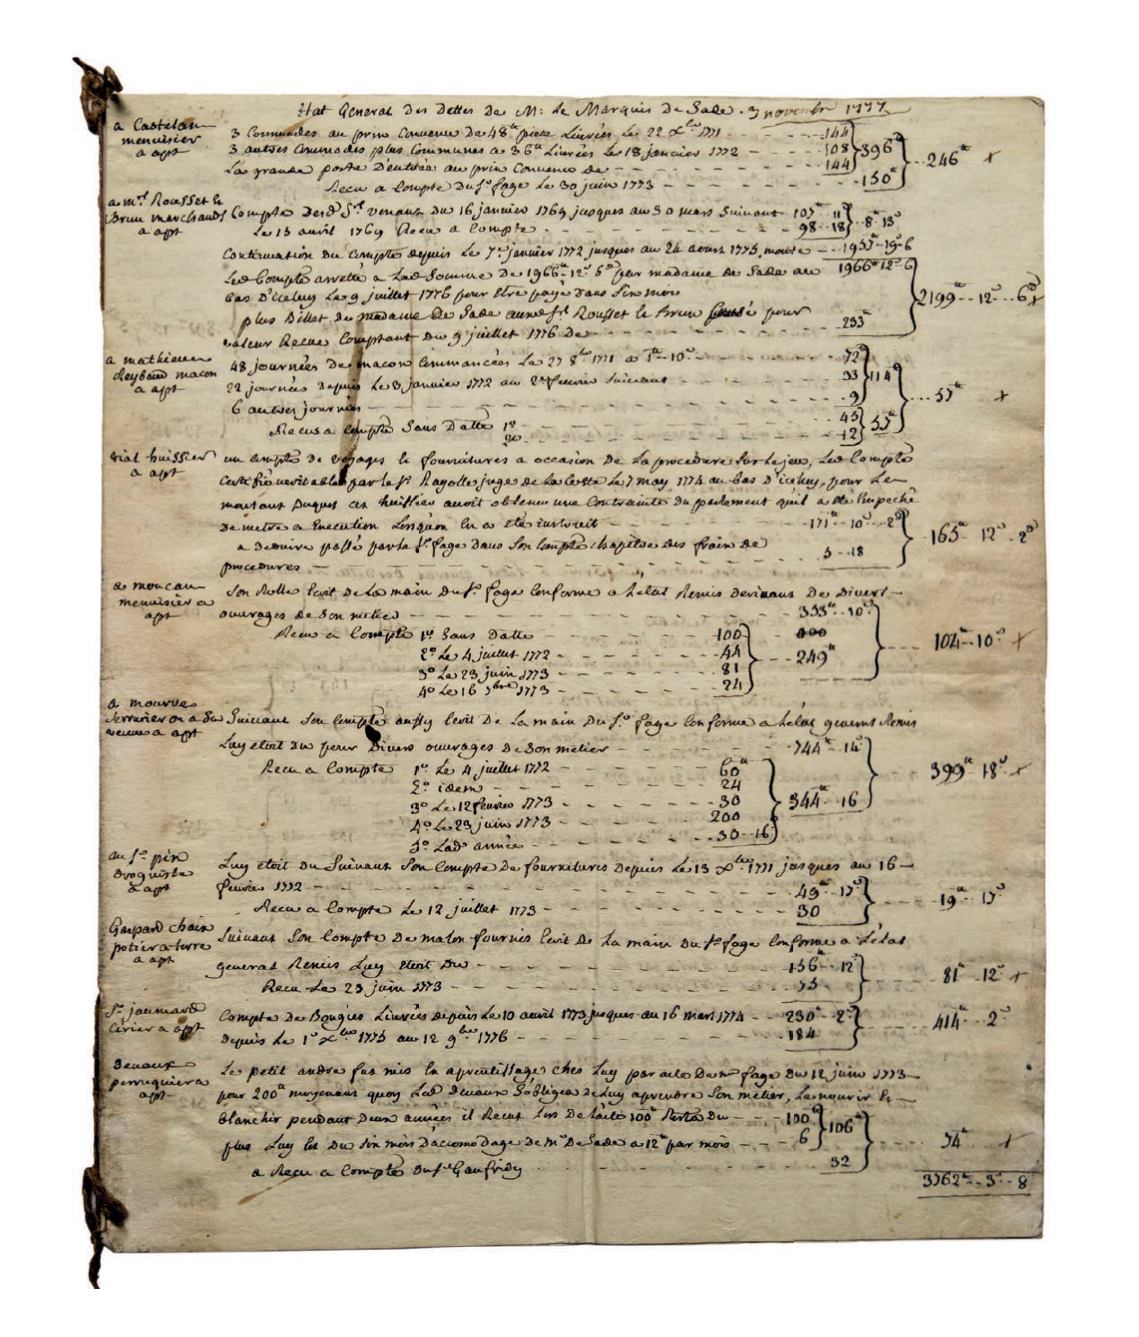 Etat General des Dettes de M: le Marquis de Sade. 3 novembre 1777
a Castelan menuisier a apt
3 Commodes au prix Convenu de 48# piece Livrées Le 22 xbre 1771 - - - 144
3 autres Commodes plus Communes a 36# Livrées Le 18 janvier 1772 - - - 108 } 396#
La grande porte D'entrée au prix Convenu de - - - 144 } - - 246# x
Recu a Compte Du Sr fage Le 30 juin 1773 - - - 150#
a mrs Rousset le Brun marchands a apt
Compte Desd Srs venant du 16 janvier 1769 jusques au 30 mars Suivant 107 - 11
Le 13 avril 1769 Recu a Compte - - - 98 - 18 } - 8 - 13
Continuation du Compte depuis Le 7e janvier 1772 jusques au 24 aoust 1775, monte - - 1957 - 19 - 6
Led Compte arretté a Lad Somme De 1966# - 12s 6d par madame de Sade au 1966# 12 - 6
bas D'iceluy Le 9 juillet 1776 pour Etre payé Dans Six mois
plus Billet de madame De Sade aud Sr Rousset le Brun pour } 2199 - - 12 - - 6d x
valeur Recue Comptant Du 9 juillet 1776 de - - - 233#
a mathieu Reybaud macon a apt
48 journées De macon Commancées Le 27 8bre 1771 a 1# - 10s - - - 72#
22 journées Depuis Le 3 janvier 1772 au 2e fevrier Suivant - - - 33 } 114#
6 autres journées - - - 9 } - - - 57# x
Recu a Compte Sans Datte 1º - - - 45
2º - - - 12 } 57#
vial huissier a apt
un Compte de voyages le fournitures a occasion De La procedure Led Compte
Certifié veritable par le Sr Ragolle juge de La Coste Le 7 may 1774 au bas D'iceluy, pour Le
montant Duquel cet huissier auroit obtenu une Contrainte Du parlement qu'il a été Empeché
De metre a Execution Lorsquon En a été instruit - - - 171# - 10s - 2d
a Deduire passé par le Sr fage Dans Son Compte chapitre des frais de } 165# 12s 2d
procedures - - - 5 - 18
a moucan menuisier a apt
Son Rolle Ecrit de La main Du Sr fage Conforme a L'etat Remis Devivans De Divers
ouvrages de Son metier - - - 353# - 10s
Recu a Compte 1º Sans Datte - - - 100
2º Le 4 juillet 1772 - - - 44
3º Le 23 juin 1773 - - - 81 } - - 249# } - - - 104# - 10s x
4º Le 16 9bre 1773 - - - 24
a mourre Serrurier ou a Sa veuve a apt
Suivant Son Compte aussy Ecrit De La main Du Sr fage Conforme a L'etat general Remis
Luy etoit Du pour Divers ouvrages De Son metier - - - 744# - 14s
Recu a Compte 1º Le 4 juillet 1772 - - - 60#
2º idem - - - 24
3º Le 12 fevrier 1773 - - - 30 } 344# - 16 } 399# 18s x
4º Le 23 juin 1773 - - - 200
5º Lad année - - - 30 - 16
au Sr pin Droguiste a apt
Luy etoit Du Suivant Son Compte De fournitures Depuis Le 13 xbre 1771 jusques au 16
fevrier 1772 - - - 49# - 17s
Recu a Compte Le 12 juillet 1773 - - - 30 } - - - 19# - 17s
Gaspard Chaix potier a terre a apt
Suivant Son Compte De malon fournis Ecrit De La main Du Sr fage Conforme a L'etat
general Remis Luy Etoit Du - - - 156# - 12s
Recu Le 23 juin 1773 - - - 75 } - - - 81# - 12s x
Sr jaumard Cirier a apt
Compte De Bougies Livrées depuis Le 10 avril 1773 jusques au 16 mars 1774 - - 230# - 2s
depuis Le 1er xbre 1775 au 12 9bre 1776 - - - 184 } - - - 414# - 2s
Devaux perruquier a apt
Le petit andre fus mis En aprentissage chez Luy par acte De me fage Du 12 juin 1773
pour 200# moyenant quoy Led Devaux S'obligea de Luy aprendre Son metier, Le nourir le
blanchir pendant Deux années il Recut Lors De L'acte 100# Reste Du - - - 100#
plus Luy Est Du Six mois D'accomodage de mr De Sade a 12# par mois - - - 6 } 106# } - - - 74# x
a Recu a Compte Du Sr Gaufridy - - - 32
3762# - - 3 - 8